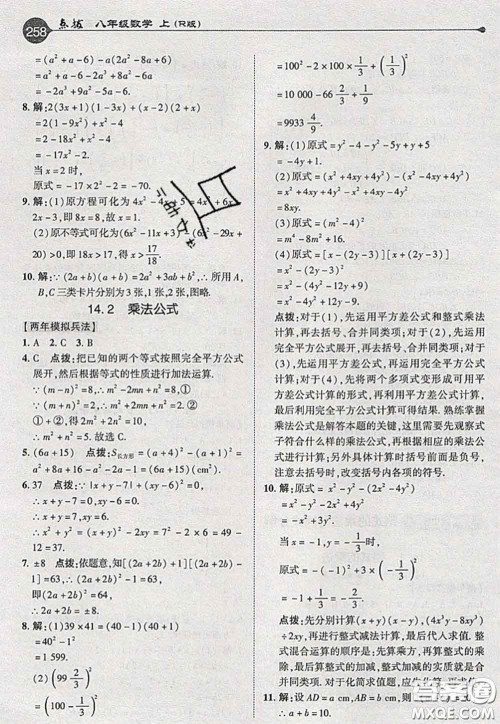 258 点拨 八年级数学 上(R版)
=(a²+a-6)-(2a³+8a²-a)
=a²+a-6-2a³-8a²+a
=-2a³-7a²+2a-6.
8. 解:2(3x+1)(1-3x)+(x-2)(2+x)
=2(1-9x²)+(x²-4)
=2-18x²+x²-4
=-17x²-2.
当x=2时,
原式=-17×2²-2=-70.
9. 解:(1)原方程可化为
2x-3,即8x=8,所以x=1.
20)>0,即18x>17,得x>17/18.
10. 解:∵(2a+b)(a+b)=2a²+3ab+b²,∴所用A,
B,C三类卡片分别为3张,1张,2张.图略.
14.2 乘法公式
[两年模拟兵法]
1. A 2. C 3. B
4. C 点拨:把已知的两个等式按照完全平方公式
展开,然后根据等式的性质进行加法运算.
∵(m-n)²=8,∴m²-2mn+n²=8,①
∵(m+n)²=2,∴m²+2mn+n²=2,②
①+②,得2m²+2n²=10,
∴m²+n²=5.故选C.
6. 37 点拨:∵|x+y-7|+(xy-6)²=0,
∴x+y-7=0,xy-6=0,
∴x+y=7,xy=6.
∴x²+y²=(x+y)²-2xy=7²-2×6=37.
7. ±8 点拨:依题意,知[(2a+2b)+1][(2a+2b)-
1]=(2a+2b)²-1²=63,∴(2a+2b)²=64,
∴2a+2b=±8.
8. 解:(1)39×41=(40-1)(40+1)
=40²-1²
=1 599.
(2)(99 2/3)²
=(100-1/3)²
=100²-2×100×1/3+(1/3)²
=10 000-66 2/3+1/9
=9933 4/9.
9. 解:(1)原式=y²-4-y²-4y+y+5
=-4y+1.
(2)原式=(x²+4xy+4y²)-(x²-4xy+4y²)
=x²+4xy+4y²-x²+4xy-4y²
=8xy.
(3)原式=(m²-4n²)²
=m⁴-8m²n²+16n⁴.
(4)原式=[2x+(y-3)][2x-(y-3)]
=4x²-(y-3)²
=4x²-(y²-6y+9)
=4x²-y²+6y-9.
点拨:对于(1),先运用平方差公式和多项式乘法
计算,再去括号、合并同类项;对于(2),先运用完
全平方公式计算,再去括号、合并同类项;
对于(3),先将两个多项式变形成可以
利用平方差公式计算的形式,计算出结果后,
最后利用完全平方公式计算可得结果.熟练掌握
乘法公式是解答本题的关键,一般要首先观察式
子符合什么样的乘法公式,再根据相应的乘法公
式进行计算;另外具体计算时括号前面是负号,
注意去括号时,改变括号内各项的符号.
10. 解:原式=x²-y²-(2x²-4y²)
=x²-y²-2x²+4y²
=-x²+3y².
当x=-1,y=1/3时,
原式=-x²+3y²
=-(-1)²+3×(1/3)²
=-1+1/3
=-2/3.
点拨:先分别计算(x+y)(x-y),(4x³y-8xy³)
÷2xy,再进行整式减法计算,最后代入求值.整式
混合运算的顺序是:先乘方,再乘除,最后算整式
的加减.对于化简求值题,应先化简,再求值.
11. 解:设AD=a cm,AB=b cm,
∴a+b=10.
答案圈
MXQE.COM